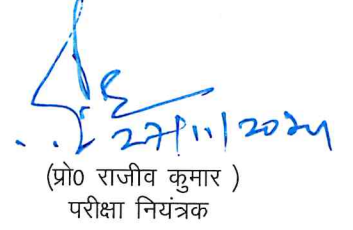 27/11/2024
(प्रो0 राजीव कुमार )
परीक्षा नियंत्रक